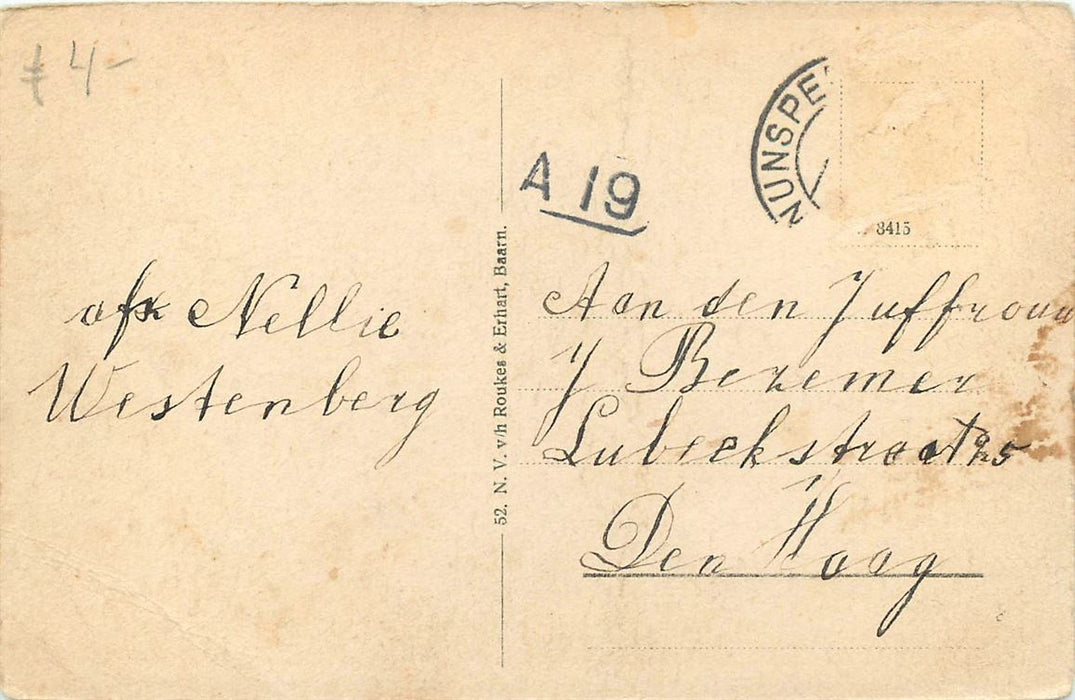 4-
A 19
NUNSPE
8415
afz Nellie
Westenberg
52. N. V. v/h Roukes & Erhart, Baarn.
Aan den Juffrouw
J Bezemer
Lubeckstraat 95
Den Haag